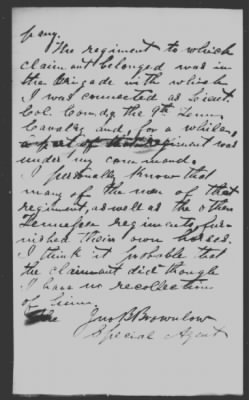 pany.
The regiment to which
claimant belonged was in
the brigade with which
I was connected as Lieut.
Col. Comdg the 9th Tenn.
Cavalry and, for a while,
a part of that regiment was
under my command.
I personally know that
many of the men of that
regiment, as well as the other
Tennessee regiments, fur-
nished their own horses.
I think it probable that
the claimant did though
I have no recollection
of him.
Jno B Brownlow
Special Agent